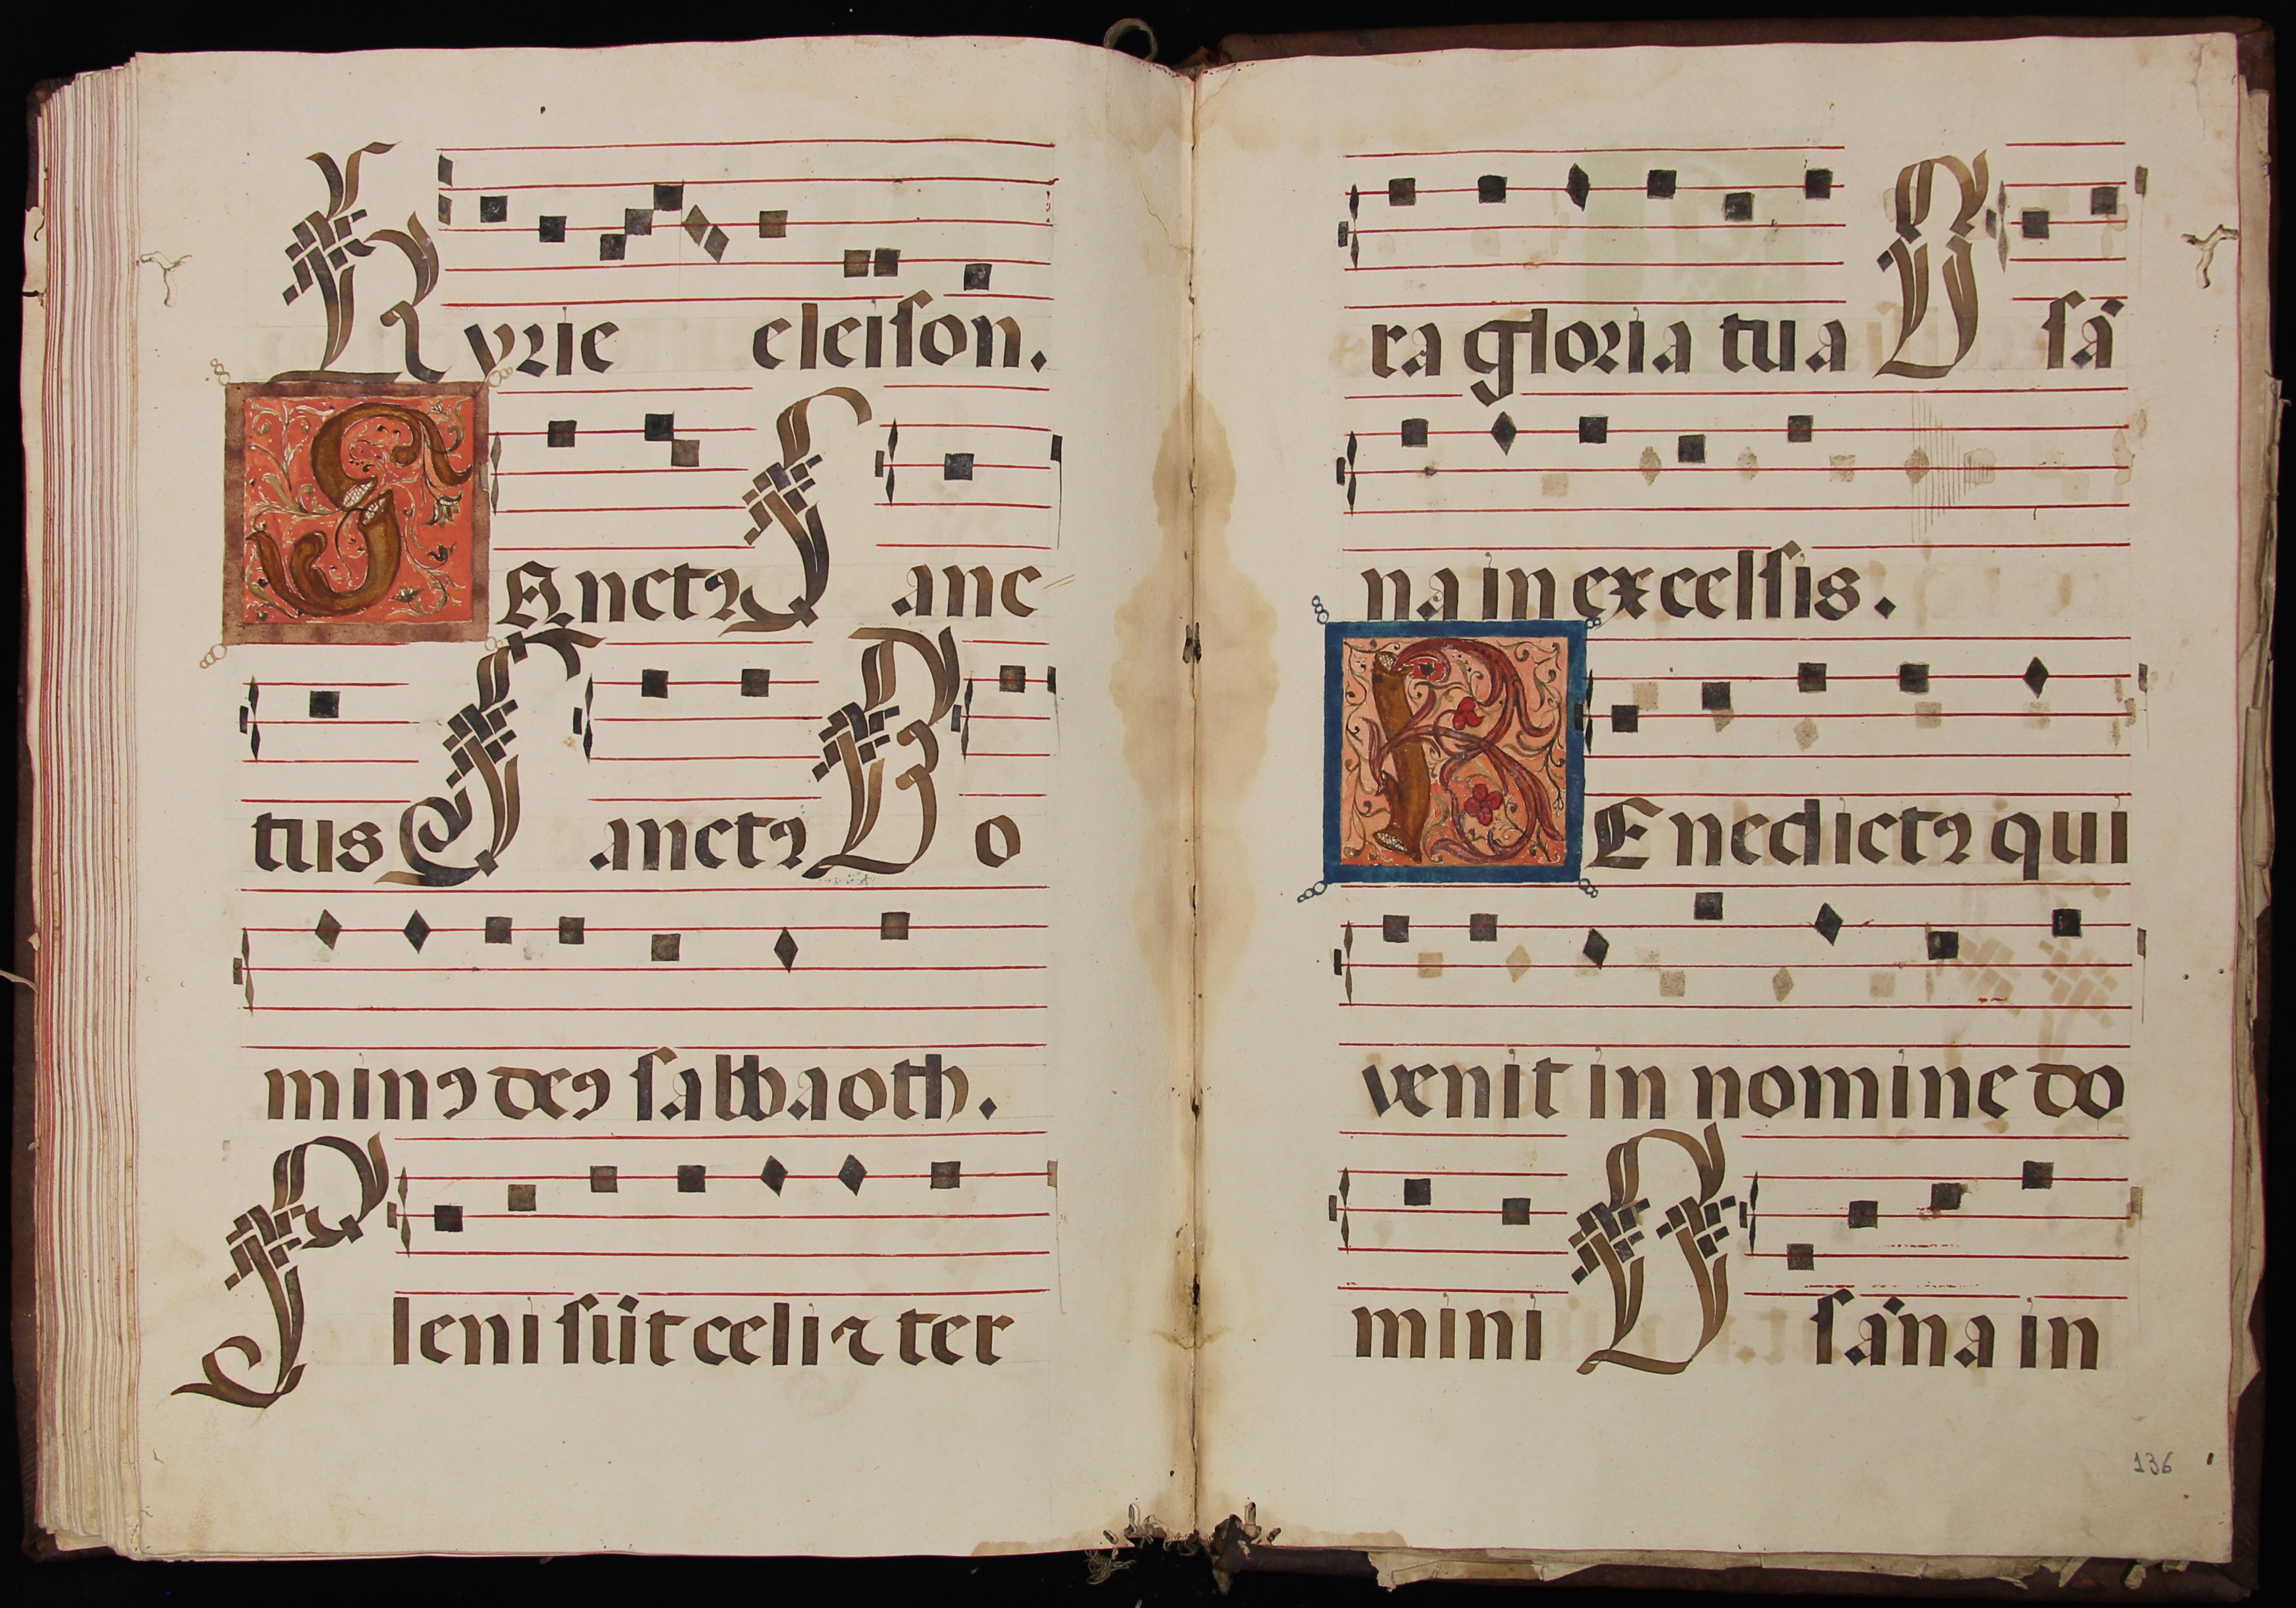 Kyrie eleiſon.
SAnctꝯ Sanc
tus Sanctꝯ Do
minꝯ deꝯ ſabbaoth.
Pleni ſūt celi ⁊ ter
ra gloria tua O ſā
na in excelſis.
BEnedictꝯ qui
venit in nomine do
mini O ſāna in
136